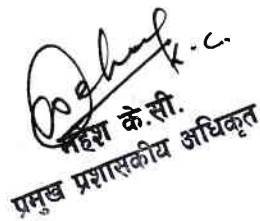 K.C.
महेश के.सी.
प्रमुख प्रशासकीय अधिकृत